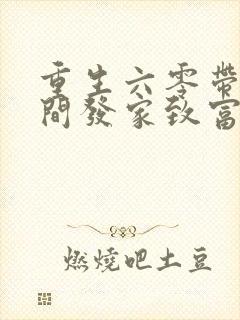 重生六零帶
間發家致富
燃燒吧土豆